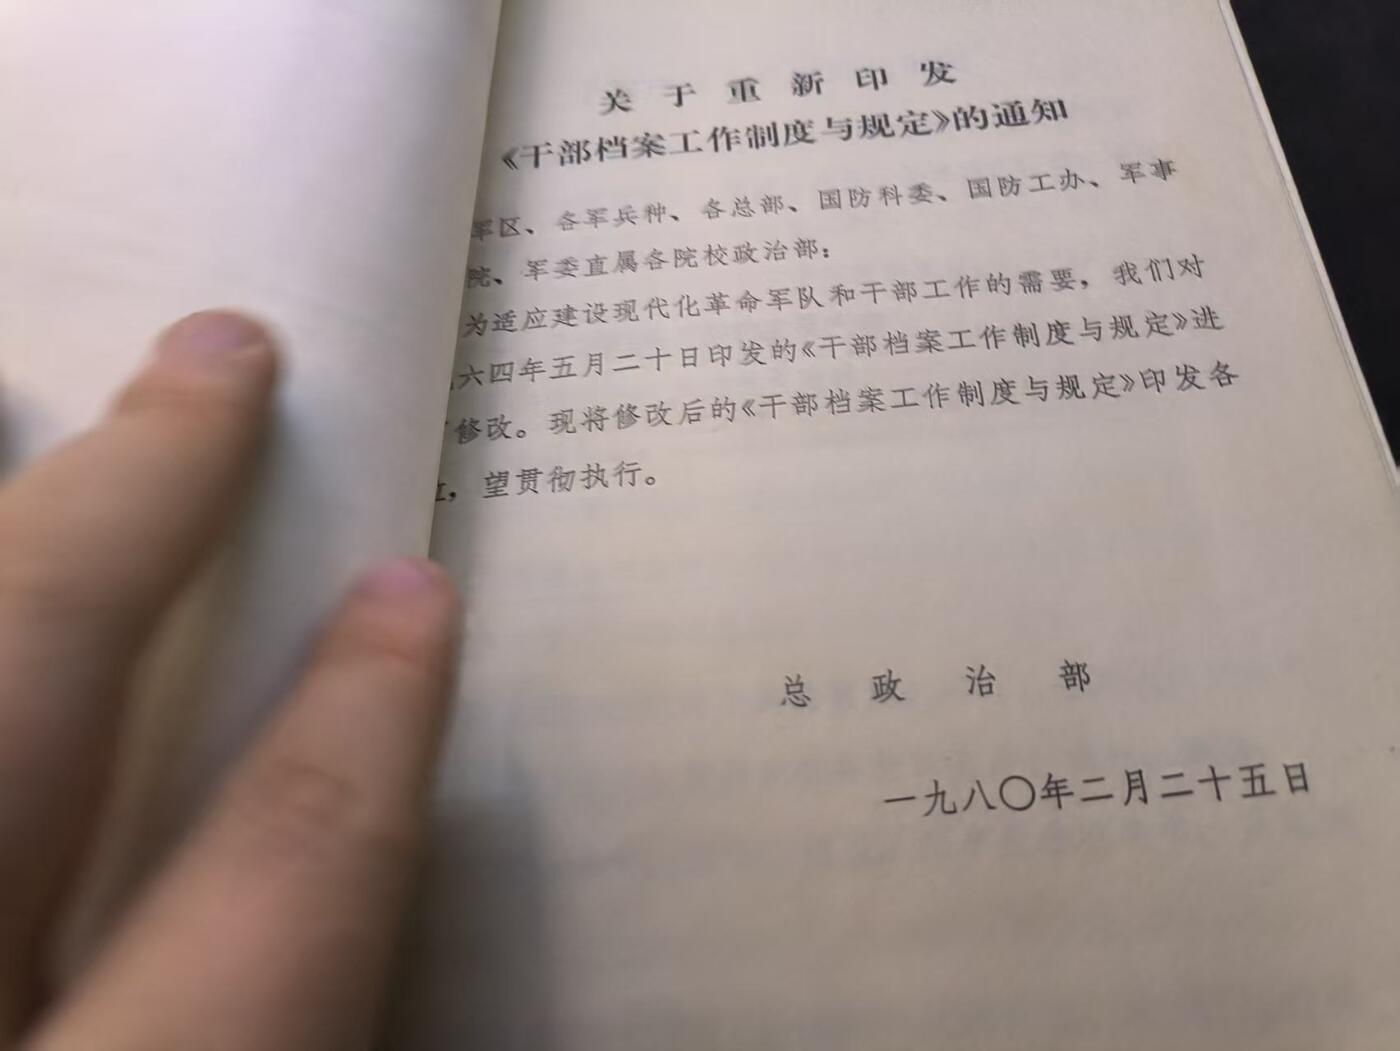 关于重新印发
《干部档案工作制度与规定》的通知
军区、各军兵种、各总部、国防科委、国防工办、军事
院、军委直属各院校政治部：
为适应建设现代化革命军队和干部工作的需要，我们对
六四年五月二十日印发的《干部档案工作制度与规定》进
修改。现将修改后的《干部档案工作制度与规定》印发各
，望贯彻执行。
总政治部
一九八〇年二月二十五日